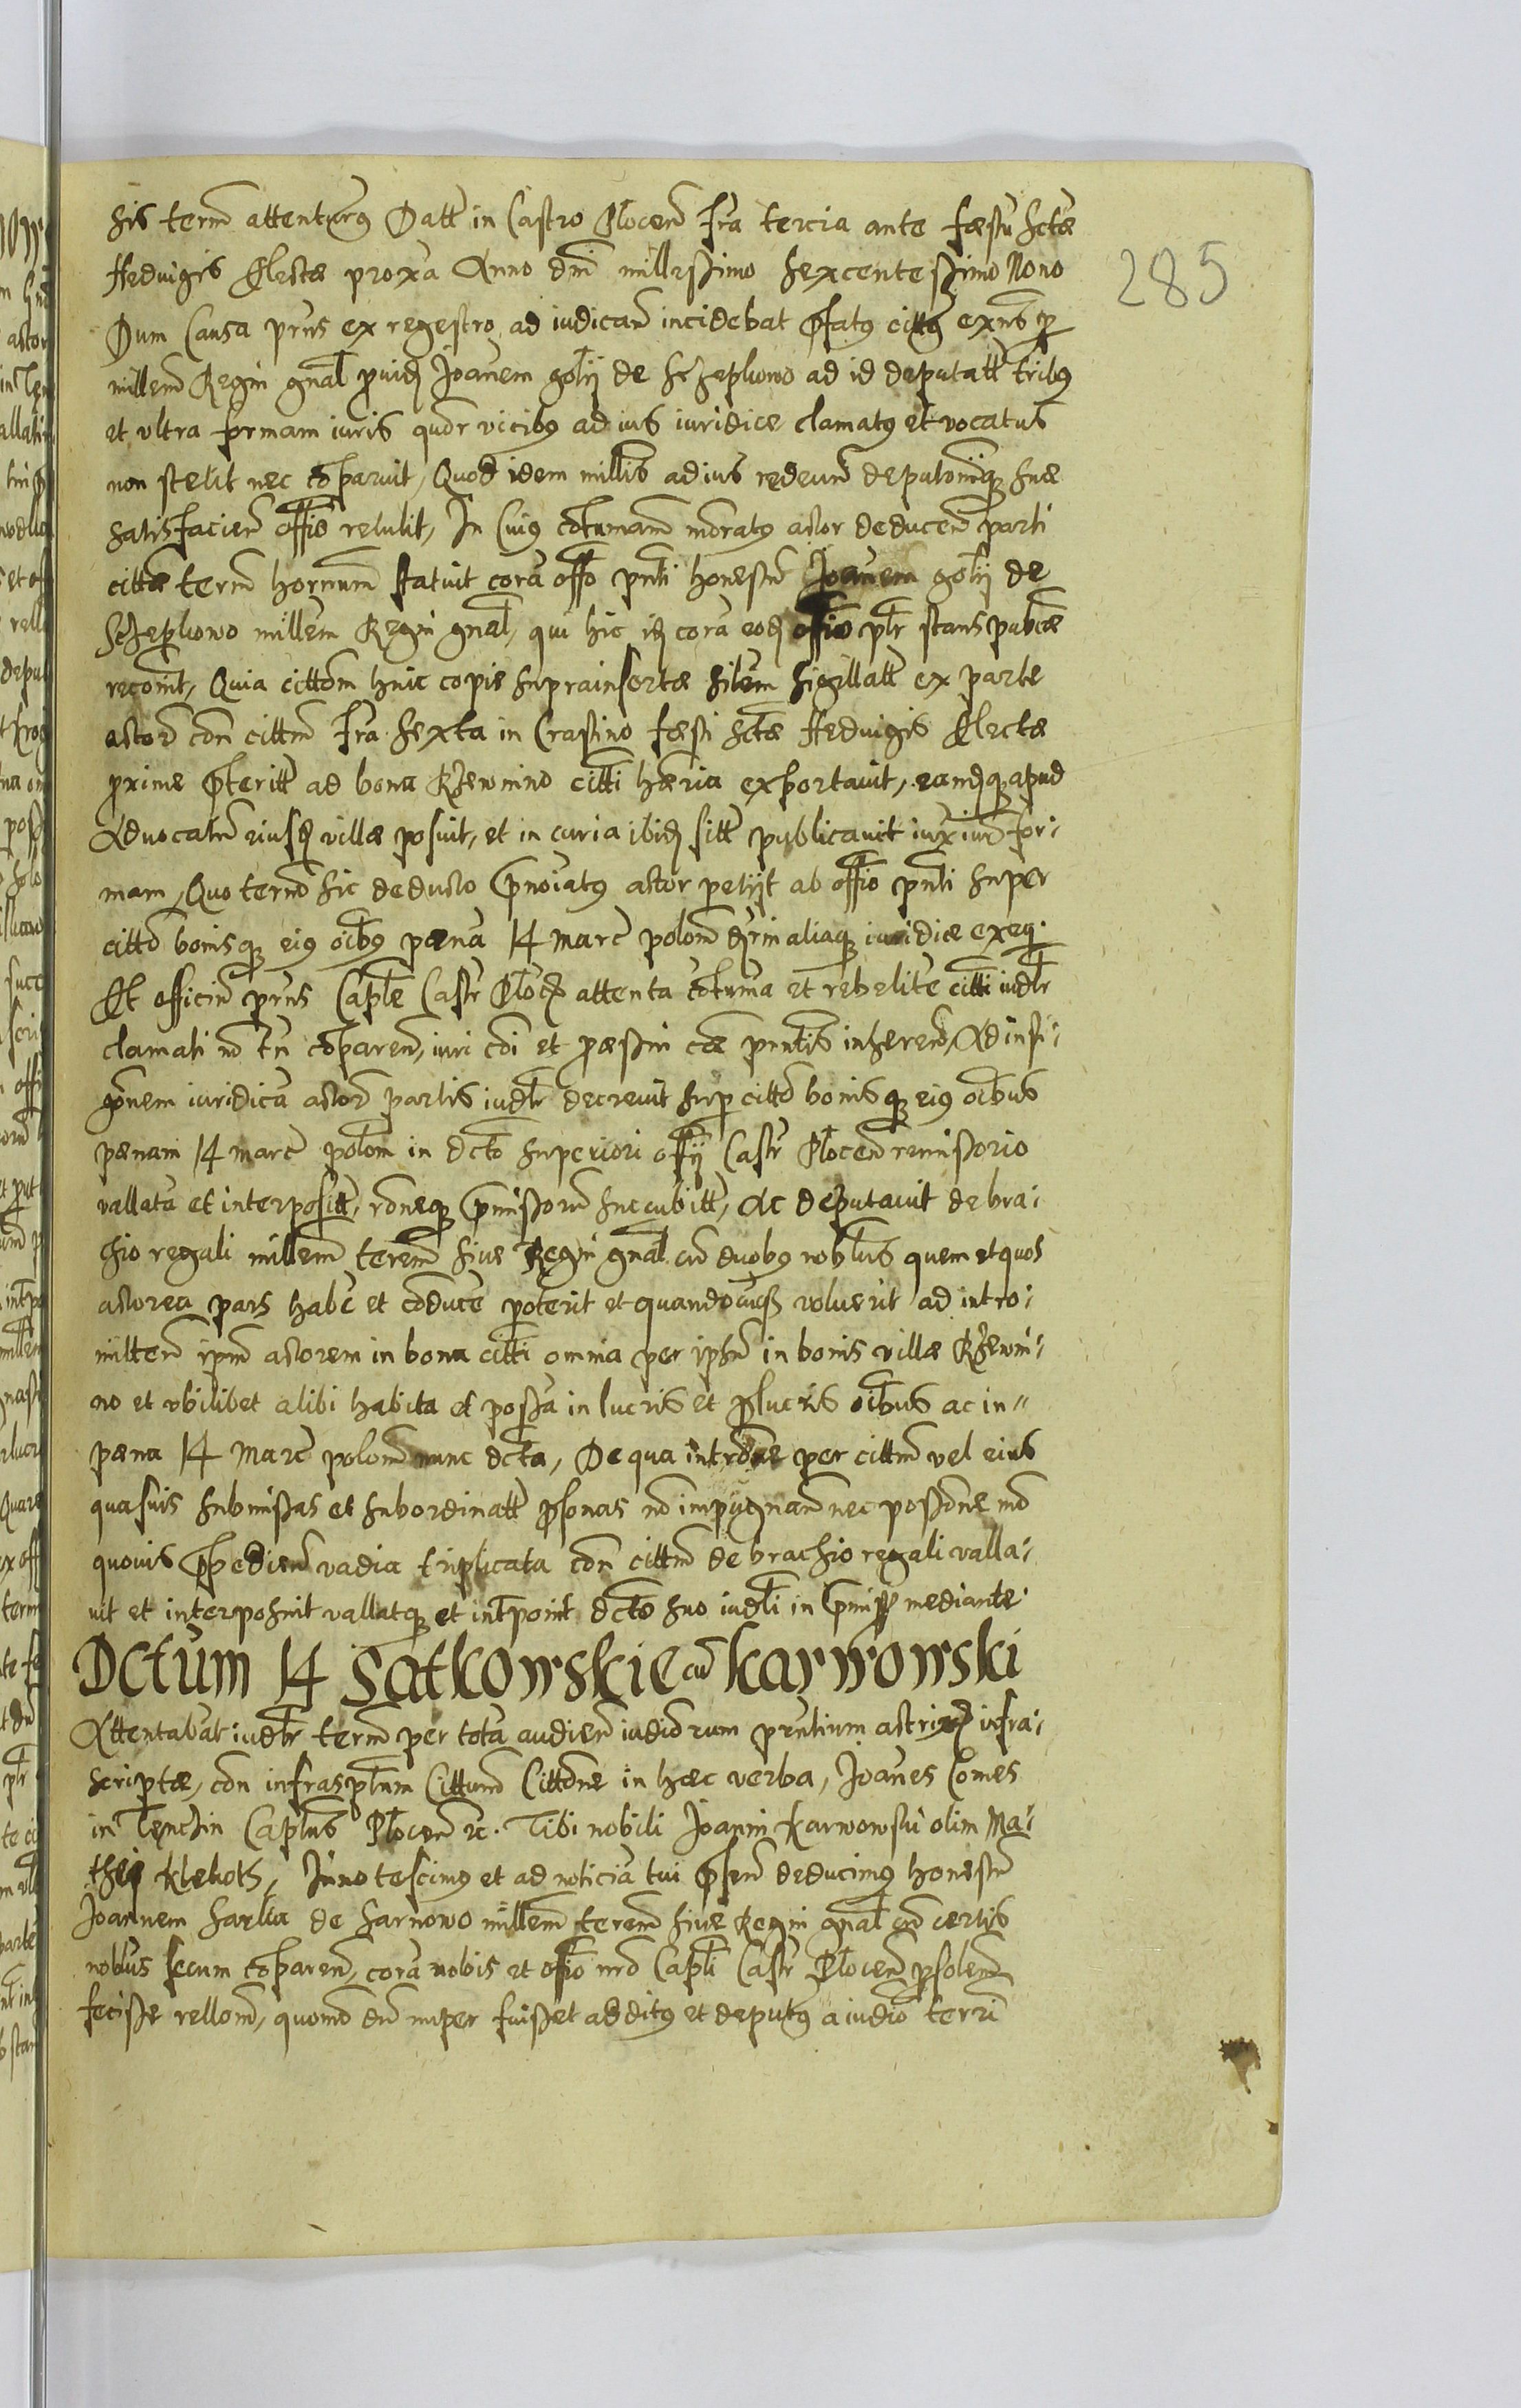 sis termi attenturg Datt in Castro Plocen fra tercia ante fæstu Sctæ
Hedvigis Electæ proxa Anno dmi millessimo sexcentessimo Nono
285
Dum Causa prns ex regestro ad iudican incidebat pfatg cittg exns p
millem Regni gnal pvid Joanem golij de Sczepkowo ad id deputatt tribg
et vltra formam iuris quor vicibg ad ius iuridice clamatg et vocatus
non stetit nec comparuit, Quod idem millis ad ius redeun deputoniq suæ
satisfacien offio retulit, In Cuig cotumam moratg actor deducen parti
cittæ term hornum statuit cora offo pnti honestu Joanem golij de
Sczepkowo millem Regni gnal, qui hic id cora eod offio plr stans pubcæ
recoint, Quia cittom huic copie suprainsertæ silem sigillatt ex parte
actor con cittm fra sexta in Crastino fæsti Sctæ Hedvigis Electæ
prime pteritt ad bona Rzewnino citti hæria exportavit, eandq apud
Advocatu eiusd villæ posuit, et in curia ibid sitt publicavit iux iur for-
mam, Quo termo sic deducto pnoiatg actor petijt ab offio pnti super
citto bonisq eig oibg pæna 14 marc polom aliaq iuridicæ exeq.
Et officiu prns Caple Castr Plocn attenta cotuma et rebelite citti iudlr
clamati no tn coparen, iuri coi et pæssm cæ pnntis inheren, Ad insti-
gnem iuridica actor partis iudlr decrevit sup citto bonisq eig oibus
pænam 14 marc polom in dcto superiori offij Castr Plocen remissorio
vallata et interpositt, roneq pmissorum succubitt, Ac deputavit de bra-
chio regali millem terrem sive Regni gnal cu duobg noblus quem et quos
actorea pars habe et conduce poterit et quandocuq voluerit ad intro-
mitten ipm actorem in bona citti omnia per ipsu in bonis villæ Rzewni-
no et vbilibet alibi habita et possa in lucris et plucris oibus ac in
pæna 14 Marc polom nunc dcta, De qua introne per cittm vel eius
quasvis submissas et subordinatt psonas no impugnan nec possone mo
quovis ppedien vadia triplicata con cittm de brachio regali valla-
vit et interposuit vallatq et intpoint dcto suo iudli in pmiss mediante.
Dctum 14 Satkowskie cu Karwowski
Attentabat iudlr term per tota audien iudiorum prntium actri infra-
scriptæ, con infrasptum Cittum Cittone in hæc verba, Joanes Comes
in Tenczin Caplus Plocen rc. Tibi nobili Joanni Karwowski olim Ma-
thei Klekoth, Innotescimg et ad noticia tui psen deducimg honestu
Joannem Sarlia de Sarnowo millem terrem sive Regni gnal cu certis
noblus secum coparen, cora nobis et offio nro Capli Castr Plocen psolen
fecisse rellom, quomo du nuper fuisset additg et deputg a iudio terri